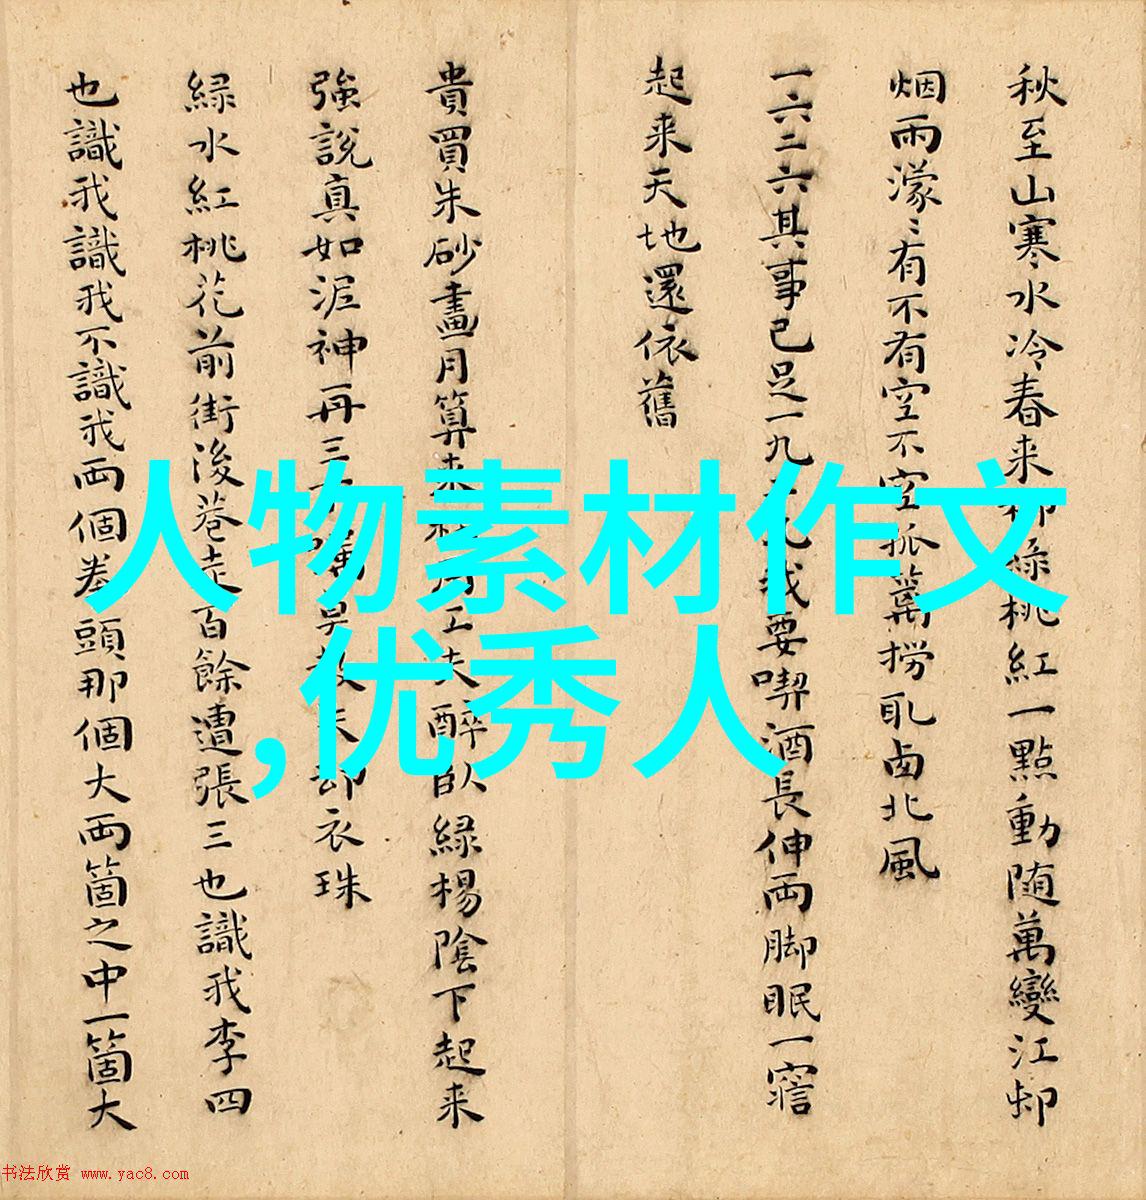 秋至山寒水冷春来柳綠桃紅一點動随萬變江邨
烟雨濛〻有不有空不空笊籬撈取西北風
一六二六其事已足一九二九我要喫酒長伸両脚眠一寤
起来天地還依舊
貴買朱砂畫月算来工夫醉臥緑楊陰下起来
強說真如泥神再三却衣珠
緑水紅桃花前街後巷走百餘遭張三也識我李四
也識我識我不識我両個拳頭那個大両箇之中一箇大
人物素材作文
,优秀人
书法欣赏 www.yac8.com